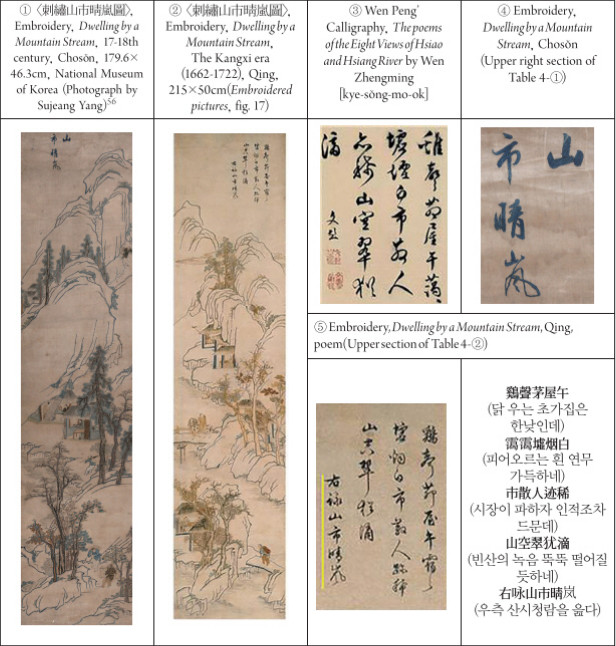 ① 〈刺繡山市晴嵐圖〉,
Embroidery, Dwelling by a
Mountain Stream, 17-18th
century, Chosŏn, 179.6×
46.3cm, National Museum
of Korea (Photograph by
Sujeang Yang)56
② 〈刺繡山市晴嵐圖〉,
Embroidery, Dwelling by a
Mountain Stream,
The Kangxi era
(1662-1722), Qing,
215×50cm(Embroidered
pictures, fig. 17)
③ Wen Peng'
Calligraphy, The poems
of the Eight Views of Hsiao
and Hsiang River by Wen
Zhengming
[kye-sŏng-mo-ok]
④ Embroidery,
Dwelling by a Mountain
Stream, Chosŏn
(Upper right section of
Table 4-①)
山
市晴嵐
雞聲茅屋午靄、
墟煙白市散人
迹稀山空翠猶
滴
文彭
山
市晴嵐
⑤ Embroidery, Dwelling by a Mountain Stream, Qing,
poem(Upper section of Table 4-②)
雞聲茅屋午靄々
墟烟白市散人跡稀
山空翠猶滴
右詠山市晴嵐
鷄聲茅屋午
(닭 우는 초가집은
한낮인데)
靄靄墟烟白
(피어오르는 흰 연무
가득하네)
市散人迹稀
(시장이 파하자 인적조차
드문데)
山空翠犹滴
(빈산의 녹음 뚝뚝 떨어질
듯하네)
右咏山市晴岚
(우측 산시청람을 읊다)